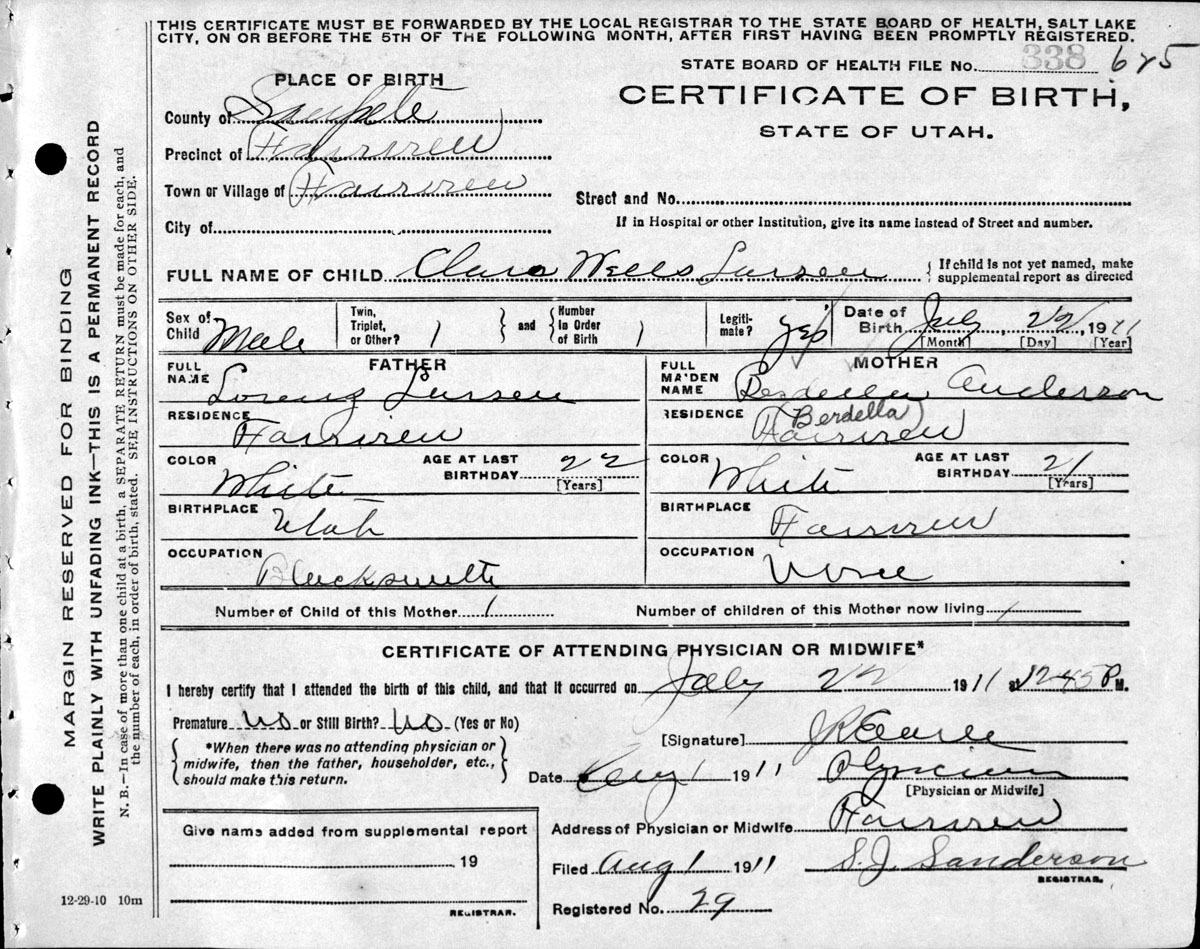 THIS CERTIFICATE MUST BE FORWARDED BY THE LOCAL REGISTRAR TO THE STATE BOARD OF HEALTH, SALT LAKE
CITY, ON OR BEFORE THE 5TH OF THE FOLLOWING MONTH, AFTER FIRST HAVING BEEN PROMPTLY REGISTERED.
STATE BOARD OF HEALTH FILE No. 338 625
PLACE OF BIRTH
CERTIFICATE OF BIRTH,
STATE OF UTAH.
County of Sanpete
Precinct of Fairview
Town or Village of Fairview
Street and No.
If in Hospital or other Institution, give its name instead of Street and number.
City of
FULL NAME OF CHILD Wells Larsen { If child is not yet named, make
supplemental report as directed
Sex of Child Male
Twin, Triplet, or Other? 1 } and { Number In Order of Birth 1
Legiti-mate? yes
Date of Birth July, 22, 1911
[Month] [Day] [Year]
FATHER
FULL NAME Lorenz Larsen
RESIDENCE Fairview
COLOR White AGE AT LAST BIRTHDAY 22 [Years]
BIRTHPLACE Utah
OCCUPATION Blacksmith
MOTHER
FULL MAIDEN NAME Berdella Anderson
Berdella
RESIDENCE Fairview
COLOR White AGE AT LAST BIRTHDAY 21 [Years]
BIRTHPLACE Fairview
OCCUPATION
Number of Child of this Mother 1 Number of children of this Mother now living 1
CERTIFICATE OF ATTENDING PHYSICIAN OR MIDWIFE*
I hereby certify that I attended the birth of this child, and that it occurred on July 22 1911 at 12-45 P. M.
Premature No or Still Birth? No (Yes or No)
{ *When there was no attending physician or
midwife, then the father, householder, etc.,
should make this return. }
[Signature]
Date Aug 1 1911 Physician
[Physician or Midwife]
Address of Physician or Midwife Fairview
Give name added from supplemental report
19
REGISTRAR.
Filed Aug 1 1911 S. J. Sanderson
REGISTRAR.
Registered No. 29
12-29-10 10m
MARGIN RESERVED FOR BINDING
WRITE PLAINLY WITH UNFADING INK—THIS IS A PERMANENT RECORD
N. B.—In case of more than one child at a birth, a SEPARATE RETURN must be made for each, and
the number of each, in order of birth, stated. SEE INSTRUCTIONS ON OTHER SIDE.